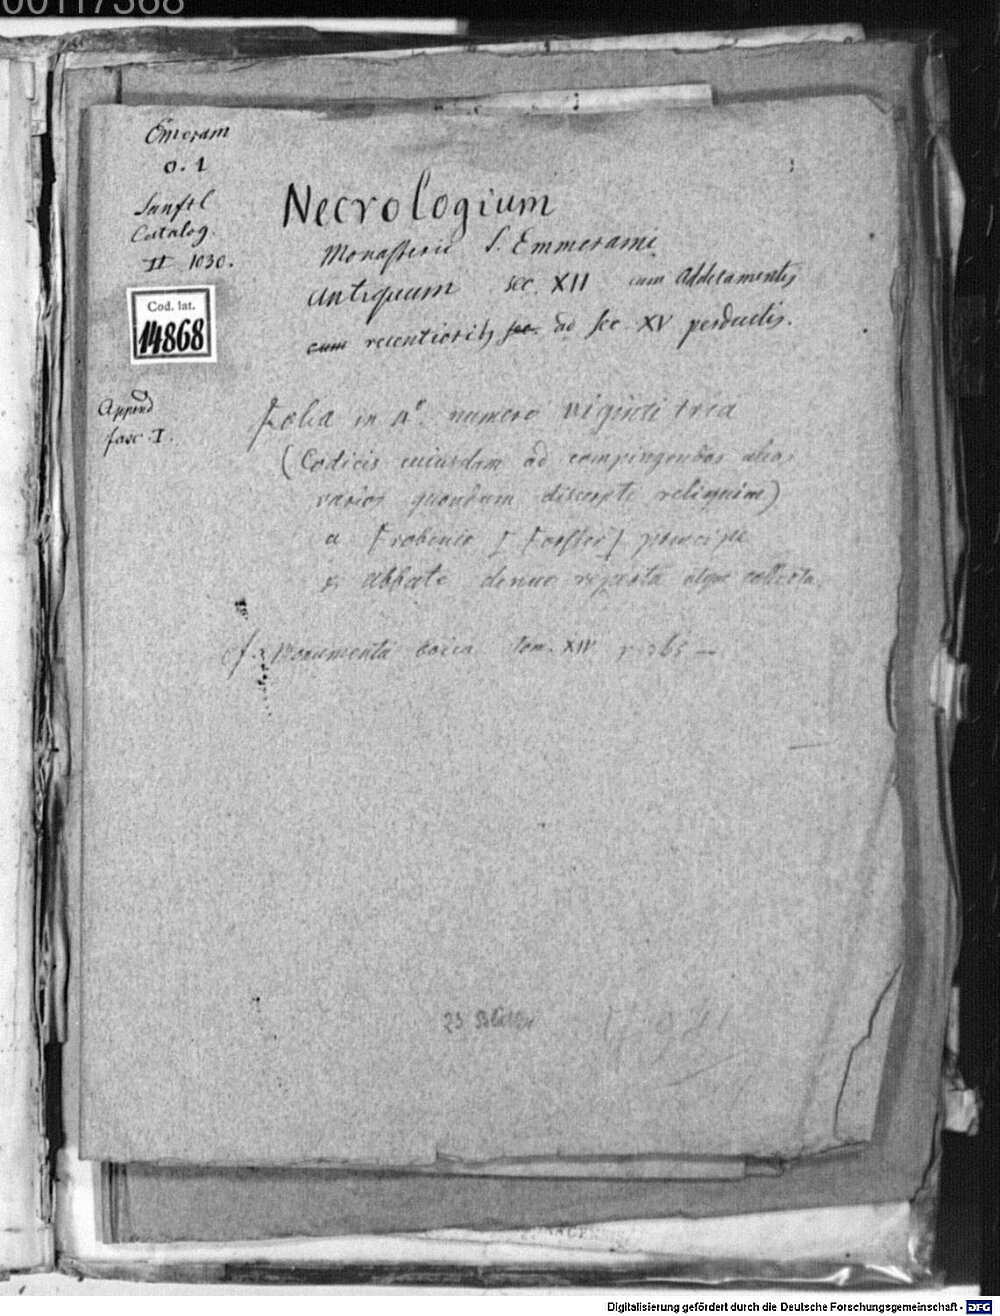 00117368
Emeram
o. 1
Sanftl
Catalog.
II 1030.
Cod. lat.
14868
Necrologium
Monasterii S. Emmerami
antiquum sec XII cum Additamentis
cum recentiorib sec. ad sec. XV perductis.
Append
fasc. I.
Folia in 4º. numero viginti tria
(Codicis cuiusdam ad compingendos alios
varios quondam discerpti reliquiae)
a Frobenio [Forster] principe
& abbate denuo reperta atque collecta.
cf. Monumenta boica tom. XIV p. 365 —
23 Blätter
Digitalisierung gefördert durch die Deutsche Forschungsgemeinschaft - DFG